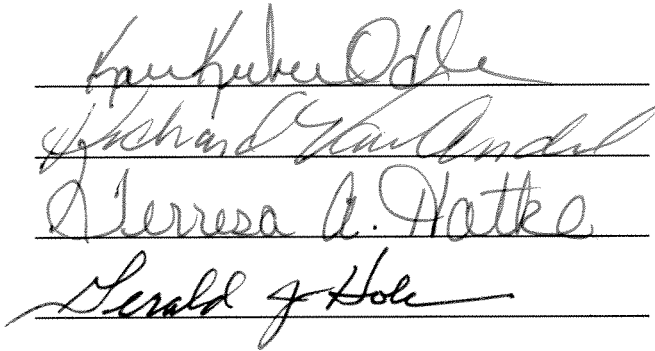 Odle
Richard Van Andel
Terresa A. Hatke
Gerald J Hole